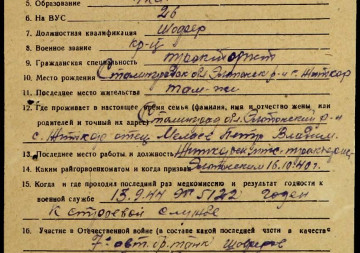 5. Образование
6. На ВУС 26
7. Должностная квалификация Шофер
8. Военное звание кр-ц
9. Гражданская специальность тракторист
10. Место рождения Сталинградск. обл. Эльтонск. р-н с. Житкур
11. Последнее место жительства там-же
12. Где проживает в настоящее время семья (фамилия, имя и отчество жены, или
родителей и точный их адрес) Сталинград. обл. Эльтонский р-н
с. Житкур отец Петр
13. Последнее место работы и должность тракторис.
14. Каким райгорвоенкоматом и когда призван Эльтонским 16.10.40 г.
15. Когда и где проходил последний раз медкомиссию и результат годности к
военной службе 15.9.44 ЭГ 5122 годен
к строевой службе
16. Участие в Отечественной войне (в составе какой последней части в качестве
7 авт. Шофером